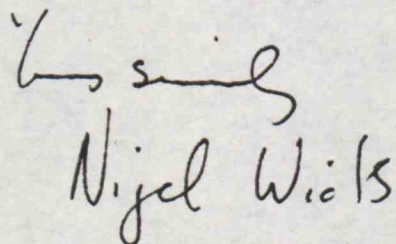 Yours sincerely
Nigel Wicks